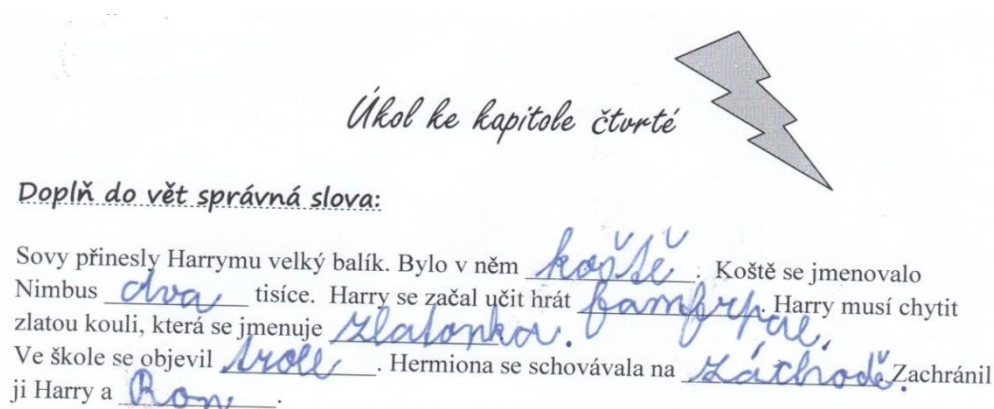 Úkol ke kapitole čtvrté
Doplň do vět správná slova:
Sovy přinesly Harrymu velký balík. Bylo v něm koště. Koště se jmenovalo
Nimbus dva tisíce. Harry se začal učit hrát famfrpál. Harry musí chytit
zlatou kouli, která se jmenuje zlatonka.
Ve škole se objevil troll. Hermiona se schovávala na záchodě. Zachránil
ji Harry a Ron.